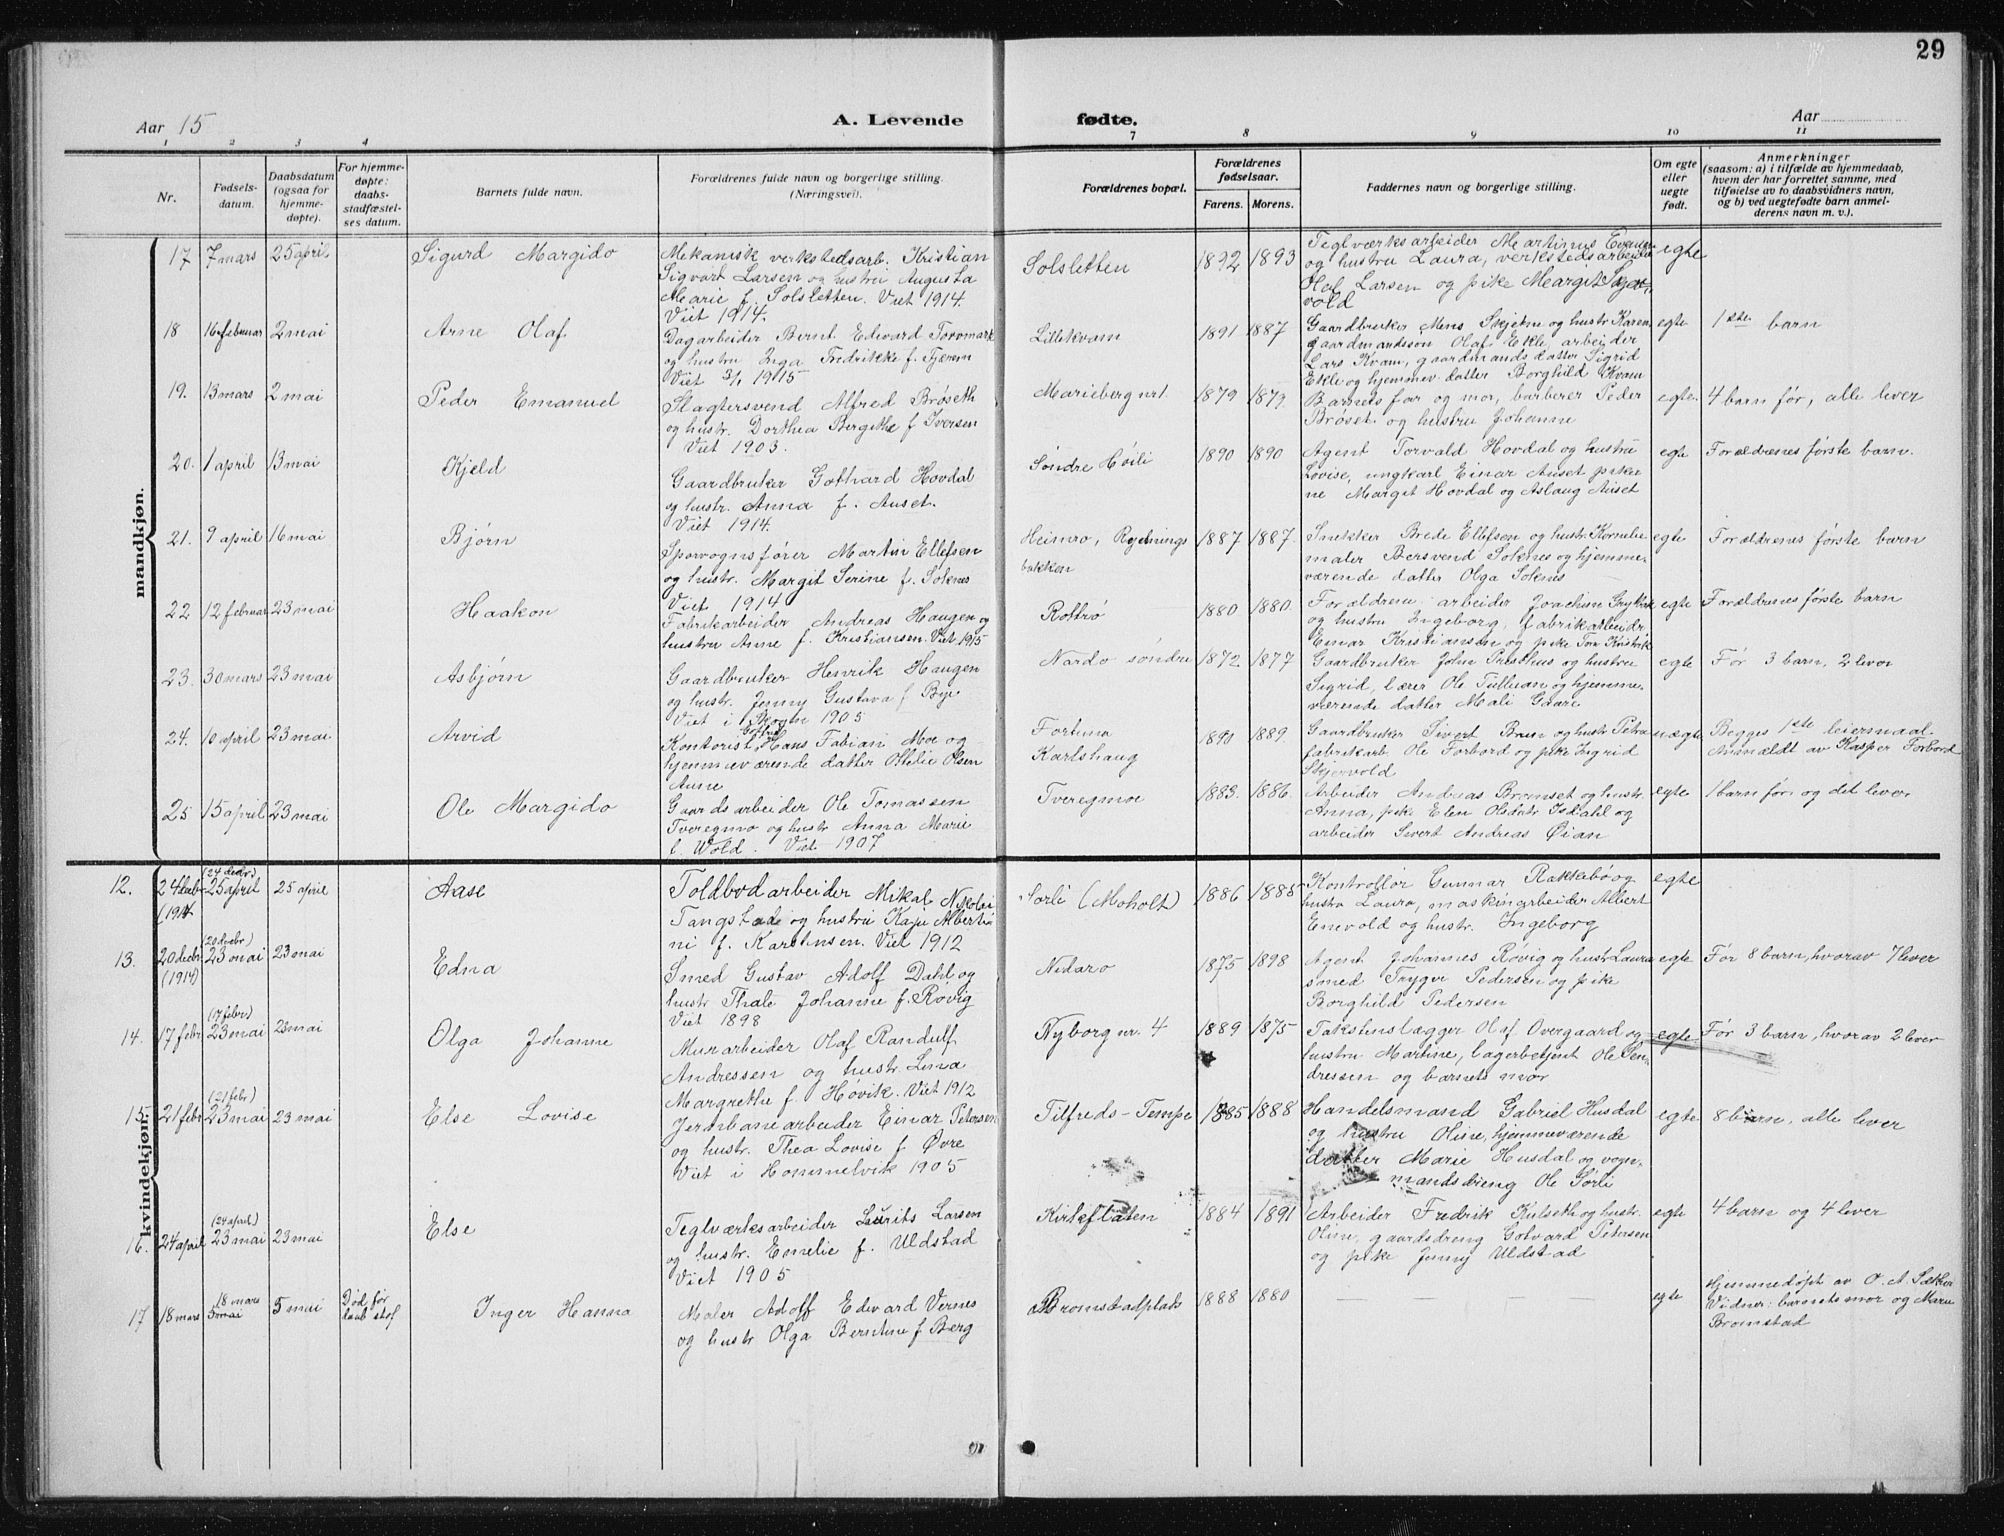 29
Aar 15
A. Levende fødte.
Aar
1 2 3 4 7 8 9 10 11
Nr.
Fødsels-
datum.
Daabsdatum
(ogsaa for
hjemme-
døpte).
For hjemme-
døpte:
daabs-
stadfæstel-
ses datum.
Barnets fulde navn.
Forældrenes fulde navn og borgerlige stilling.
(Næringsvei).
Forældrenes bopæl.
Forældrenes
fødselsaar.
Farens. Morens.
Faddernes navn og borgerlige stilling.
Om egte
eller
uegte
født.
Anmerkninger
(saasom: a) i tilfælde av hjemmedaab,
hvem der har forrettet samme, med
tilføielse av to daabsvidners navn,
og b) ved uegtefødte barn anmel-
derens navn m. v.).
mandkjøn.
17 7 mars 25 april
Sigurd Margido
Mekanisk verkstedsarb. Kristian
Sigvart Larsen og hustru Augusta
Marie f. Solsletten. Viet 1914.
Viet 1914.
Solsletten
1892 1893
Teglværksarbeider Martinus Evensen
og hustru Laura, verkstedsarbeider
Olaf Larsen og pike Margit Skjer-
vold
egte
18 16 februar 2 mai
Arne Olaf
Dagarbeider Bernt Edvard Torvmark
og hustru Inga Fredrikke f. Tjerem
Viet 3/1 1915
Lillekvam
1891 1887
Gaardbruker Mens Skjekne og hustr Karen
gaardmandssøn Olaf Ekle, arbeider
Lars Kvam, gaardmands datter Sigrid
Ekle og hjemmev. datter Borghild Kvam
egte
1ste barn
19. 13 mars 2 mai
Peder Emanuel
Slagtersvend Alfred Brøseth
og hustr. Dorthea Bergithe f Iversen
Viet 1903.
Marieberg nr 1.
1879 1879.
Barnets far og mor, barberer Peder
Brøset og hustru Johanne
egte.
4 barn før, alle lever
20. 1 april 13 mai
Kjeld
Gaardbruker Gothard Hovdal
og hustr. Anna f. Auset.
Viet 1914.
Søndre Høili
1890 1890
Agent Torvald Hovdal og hustru
Lovise, ungkarl Einar Auset piker
ne Margit Hovdal og Aslaug Auset
egte
Forældrenes første barn.
21. 9 april 16 mai
Bjørn
Sporvognsfører Martin Ellefsen
og hustr. Margit Serine f. Soknes
Viet 1914
Heimro, Rydnings
bakken
1887 1887.
Snekker Brede Ellefsen og hustr Kornelie
maler Bersvend Soknes og hjemme-
værende datter Olga Soknes
egte
Forældrenes første barn
22 12 februar 23 mai
Haakon
Fabrikarbeider Andreas Haugen og
hustru Anne f. Kristiansen. Viet 1915
Rottrø
1880 1880.
Forældrene arbeider Joachim
og hustru Ingeborg, fabrikarbeider
Einar Kristiansen og pike
egte
Forældrenes første barn
23. 30 mars 23 mai
Asbjørn
Gaardbruker Henrik Haugen
og hustr. Jenny Gustava f Bye
Viet i Skogn 1905
Nardo søndre
1872. 1877
Gaardbruker John Presthus og hustru
Sigrid, lærer Ole Tulluan og hjemme-
værende datter Mali Gaare
egte
Før 3 barn, 2 lever
24. 10 april 23 mai
Arvid
Kontorist Hans Fabian Moe og
hjemmeværende datter Ottelie Olsen
Aune
Fortuna
Karlshaug
1890 1889.
Gaardbruker Sivert Brun og hustr Petra
fabrikarb. Ole Forbord og pike Ingrid
Skjervold
uægte
Begges 1ste leiermaal.
Anmeldt av Kasper Forbord
25 15 april 23 mai
Ole Margido
Gaardsarbeider Ole Tomassen
Tveregmo og hustr Anna Marie
f. Wold. Viet 1907
Tveregmoe
1883. 1886.
Arbeider Andreas Bromset og hustr.
Anna, pike Elen Olsdatr Isdahl og
arbeider Sivert Andreas Øian
egte
1 barn før og det lever
kvindekjøn.
12. 24 decb (1914 (24 decbr.) 25 april 25 april
Aase
Toldbodarbeider Mikal Nikolai
Tangstad og hustru Kaja Alberti-
ni f. Karstensen. Viet 1912
Sørli (Moholt)
1886 1885
Kontrollør Gunnar Rakkebø og
hustru Laura, maskinarbeider Albert
Enevold og hustr. Ingeborg
egte
13. 20 decbr (1914) (20 decbr) 23 mai 23 mai
Edna
Smed Gustav Adolf Dahl og
hustr Thale Johanne f. Røvig
Viet 1898
Nidaro
1875 1898
Agent Johannes Røvig og hustr Laura
smed Trygve Pedersen og pike
Borghild Pedersen
egte
Før 8 barn, hvorav 7 lever
14. 17 febr (17 febr) 23 mai 23 mai
Olga Johanne
Murarbeider Olaf Randulf
Andressen og hustr. Lina
Margrethe f. Høvik. Viet 1912
Nyborg nr. 4
1889 1875
Takstenslægger Olaf Overgaard og
hustru Martine, lagerbetjent Ole Sen-
dressen og barnets mor
egte
Før 3 barn, hvorav 2 lever
15. 21 febr (21 febr) 23 mai 23 mai
Else Lovise
Jernbanearbeider Einar Petersen
og hustr. Thea Lovise f Øvre
Viet i Hommelvik 1905
Tilfreds-Tempe
1885 1888
Handelsmand Gabriel Husdal
og hustru Oline, hjemmeværende
datter Marie Husdal og vogn-
mandsdreng Ole Sørli
egte
8 barn, alle lever
16. 24 april (24 april) 23 mai 23 mai
Else
Teglværksarbeider Laurits Larsen
og hustr. Emelie f. Uldstad
Viet 1905
Kirkeflaten
1884 1891
Arbeider Fredrik Kulseth og hustr.
Oline, gaardsdreng Gotvard Petersen
og pike Jenny Uldstad
egte
4 barn og 4 lever
17 18 mars 18 mars 5 mai 5 mai
Død før
daab stof
Inger Hanna
Maler Adolf Edvard Vernes
og hustr Olga Berntine f Berg
Bromstadplads
1888 1880
— — — —
egte
Hjemmedøpt av O. A. Sæther
Vidner: barnets mor og Marie
Bromstad